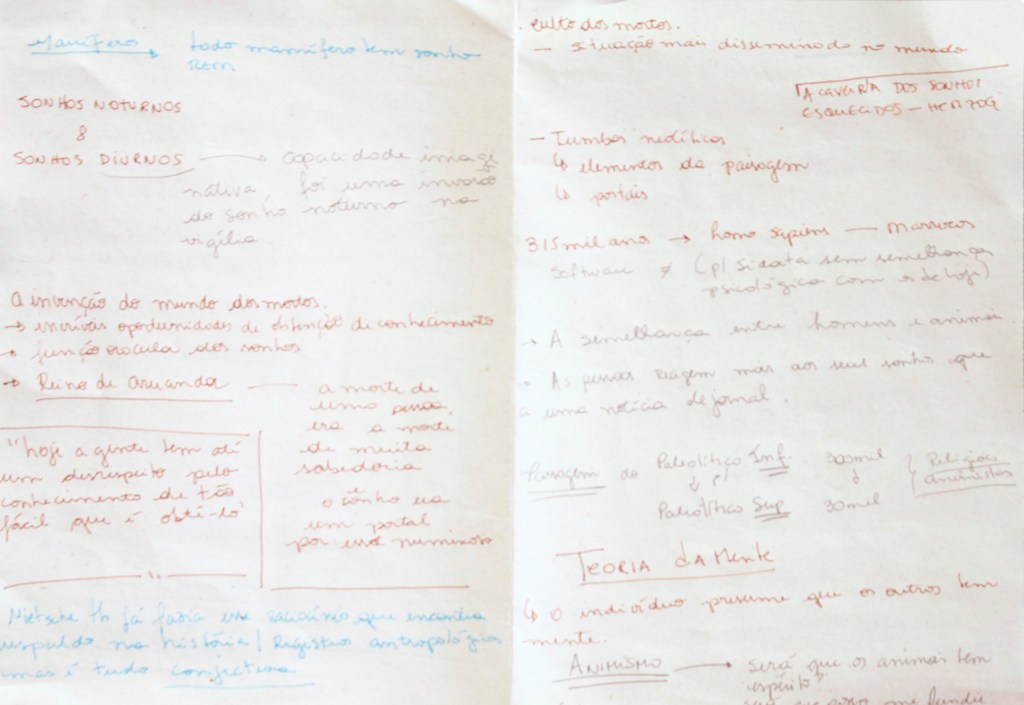 Mamíferos → todo mamífero tem sonho
REM
SONHOS NOTURNOS
&
SONHOS DIURNOS → capacidade imagi
nativa, foi uma invasão
do sonho noturno na
vigília
A invenção do mundo dos mortos.
→ incríveis oportunidades de obtenção de conhecimento
→ função oracula dos sonhos
→ Reino de Aruanda — a morte de
uma pessoa,
era a morte
de muita
sabedoria
o sonho era
um portal
por esse numinoso
"hoje a gente tem até
um desrespeito pelo
conhecimento de tão
fácil que é obtê-lo"
Nietsche tb já fazia esse raciocínio que encontra
respaldo na história / registro antropológico
mas é tudo conjectura
culto dos mortos.
- Situação mais disseminada no mundo
A CAVERNA DOS SONHOS
ESQUECIDOS - HERZOG
- Tumbas neolíticas
↳ elementos da paisagem
↳ portais
315 mil anos → homo sapiens — Marrocos
Software ≠ (p/ Sidarta sem semelhança
psicológica com os de hoje)
→ A semelhança entre homens e animais
→ As pessoas reagem mais aos seus sonhos que
a uma notícia de jornal.
Passagem do Paleolítico Inf. 300mil
↓ p/ ↓
Paleolítico Sup 30mil
Religiões
animistas
TEORIA da Mente
↳ o indivíduo presume que os outros tem
mente.
ANIMISMO → será que os animais tem
espírito?